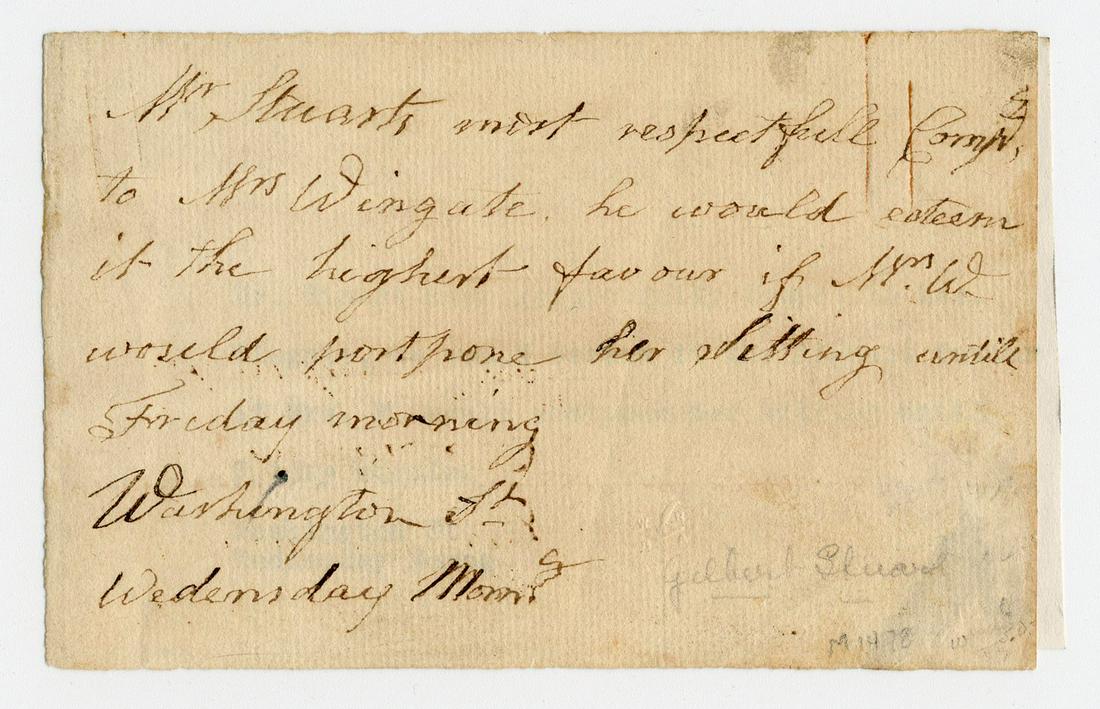 Mr Stuarts most respectfull Comps,
to Mrs Wingate. he would esteem
it the highest favour if Mrs. W
would postpone her sitting untill
Friday morning
Washington St
Wedensday Morng
Gilbert Stuart
M 1478